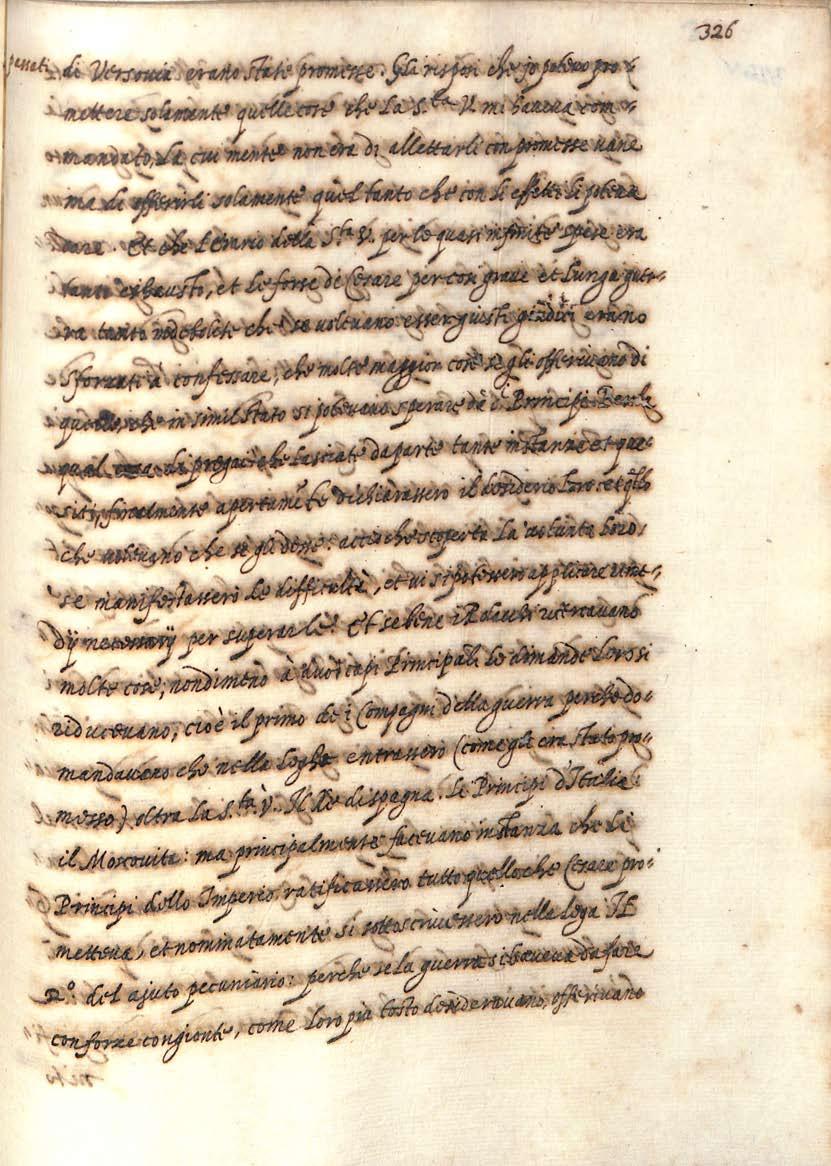 326
di Versovia erano state promesse. Gli risposi che jo potevo pro-
mettere solamente quelle cose che la S.ta V. mi haveva com-
mandato, la cui mente non era di allettarli con promesse vane
ma di offerirli solamente quel tanto che con li effetti si poteva
dare. Et che l'erario della S.ta V. per le quasi infinite spese era
tanto exhausto, et le forse di Cesare per con grave et lunga guer-
ra tanto indebolite che se volevano esser giusti giudici erano
sforzati à confessare, che molte maggior cose se gli offerivano di
quelle che in simil stato si potevano sperare dà i Principi. Per la
qual di pregai che lasciate da parte tante instanze et que-
siti, finalmente apertamẽte dichiarassero il desiderio loro et q̃llo
che volevano che se gli desse: acciò che scoperta la volunta loro
se manifestassero le difficoltà, et vi si potessero applicare reme-
dij necessarij per superarle. Et se bene i Polachi ricercavano
molte cose, nondimeno à duoi capi Principali le dimande loro si
riducevano, cioè il primo de i Compagni della guerra perche do-
mandavano che nella legha entrassero (come gli era stato pro-
messo) oltra la S.ta V. Il Re di spagna. Li Principi d'Italia
il Moscovita: ma principalmente facevano instanza che li
Principi dello Imperio ratificassero tutto quello che Cesare pro-
metteva, et nominatamente si sottoscrivessero nella lega. Il
2.º del ajuto pecuniario: perche se la guerra si haveva da fare
con forze congionte, come loro più tosto desideravano, offerivano